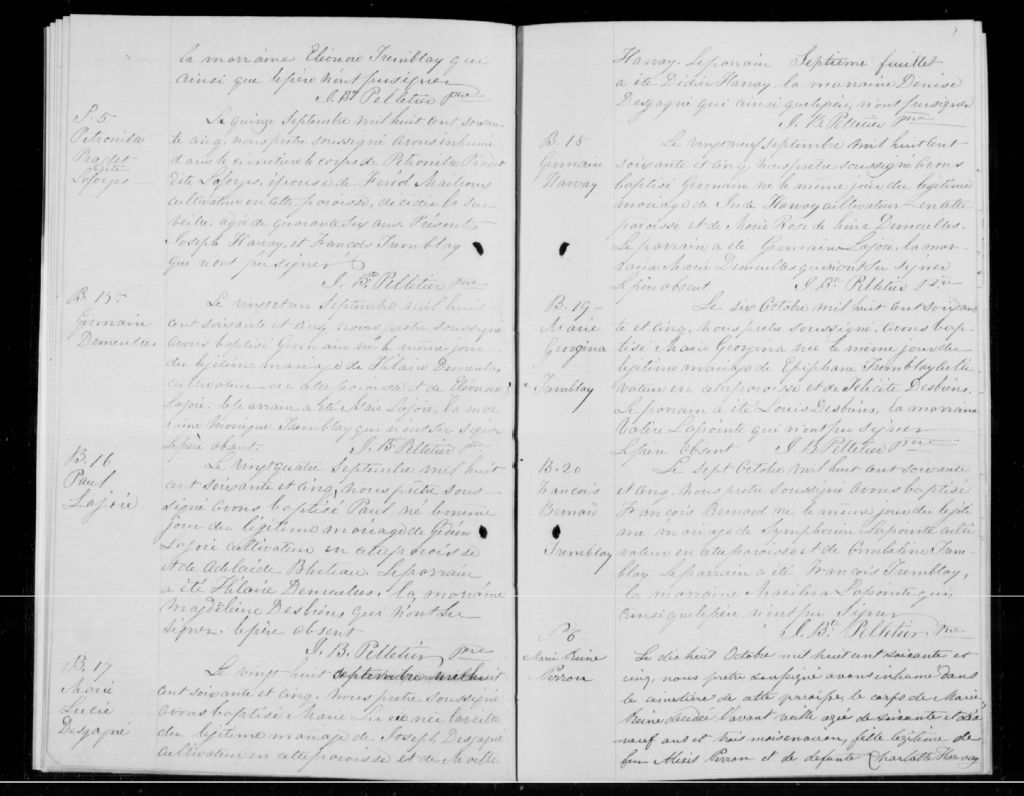 la marraine Eléonore Tremblay qui
ainsi que le père n'ont pu signer
J. Bte Pelletier Ptre
S. 5
Petronille
Pradet
dite
Laforges
Le quinze Septembre mil huit cent soixan-
te cinq, nous prêtre soussigné avons inhumé
dans le cimetière le corps de Petronille Pradet
dite Laforges, épouse de
cultivateur en cette paroisse, décédée la sur-
veille agée de quarante six ans. Présents
Joseph Harvay, et François Tremblay
qui n'ont pu signer
J. Bte Pelletier ptre
B. 15
Germain
Demeules
Le vingt un Septembre mil huit
cent soixante et cinq nous prêtre soussigné
avons baptisé Germain né le même jour
du légitime mariage de Hilaire Demeules
cultivateur en cette paroisse et de Eléonore
Lajoie. Le parrain a été Lajoie, la mar-
raine Monique Tremblay qui n'ont su signer
le père absent. J. Bte Pelletier ptre
B. 16
Paul
Lajoie
Le vingt quatre Septembre mil huit
cent soixante et cinq, nous prêtre sous-
signé avons baptisé Paul né le même
jour du légitime mariage de Gédéon
Lajoie cultivateur en cette paroisse
et de Adelaide Le parrain
a été Hilaire Demeules, la marraine
Magdeleine Desbiens qui n'ont su
signer. le père absent
J. B. Pelletier ptre
B. 17
Marie
Lucie
Desgagné
Le vingt huit septembre mil huit
cent soixante et cinq, nous prêtre soussigné
avons baptisé Marie Lucie née la veille
du légitime mariage de Joseph Desgagné
cultivateur en cette paroisse et de
Harvay. Le parrain Septième feuillet
a été Didier Harvay, la marraine Denise
Desgagné qui ainsi que le père, n'ont pu signer
J. B. Pelletier Ptre
B. 18
Germain
Harvay
Le vingt neuf Septembre mil huit cent
soixante et cinq, nous prêtre soussigné avons
baptisé Germain né le même jour du légitime
mariage de Harvay cultivateur en cette
paroisse et de Marie Rose de Lima Demeules.
Le parrain a été Germain Lajoie, la mar-
raine Marie Demeules qui n'ont su signer
le père absent. J. Bte Pelletier ptre
B. 19
Marie
Georgina
Tremblay
Le six Octobre mil huit cent soixan-
te et cinq, nous prêtre soussigné, avons bap-
tisé Marie Georgina née le même jour du
légitime mariage de Epiphane Tremblay culti-
vateur en cette paroisse et de Félicité Desbiens.
Le parrain a été Louis Desbiens, la marraine
Valérie Lapointe qui n'ont pu signer
Le père Absent J. B Pelletier Ptre
B. 20
François
Bernard
Tremblay
Le sept Octobre mil huit cent soixante
et cinq, nous prêtre soussigné avons baptisé
François Bernard né le même jour du légiti
me mariage de Symphorien Lapointe culti
vateur en cette paroisse et de Ombeline Trem-
blay. Le parrain a été François Tremblay,
la marraine Lapointe qui,
ainsi que le père n'ont pu signer
J. Bte Pelletier Ptre
S. 6
Marie Reine
Perron
Le dix huit Octobre mil huit cent soixante et
cinq, nous prêtre soussigné avons inhumé dans
le cimetière de cette paroisse, le corps de Marie
Reine décédée l'avant veille agée de soixante et dix
neuf ans et trois mois environ, fille légitime de
feu Alexis Perron et de défunte Charlotte Harvay